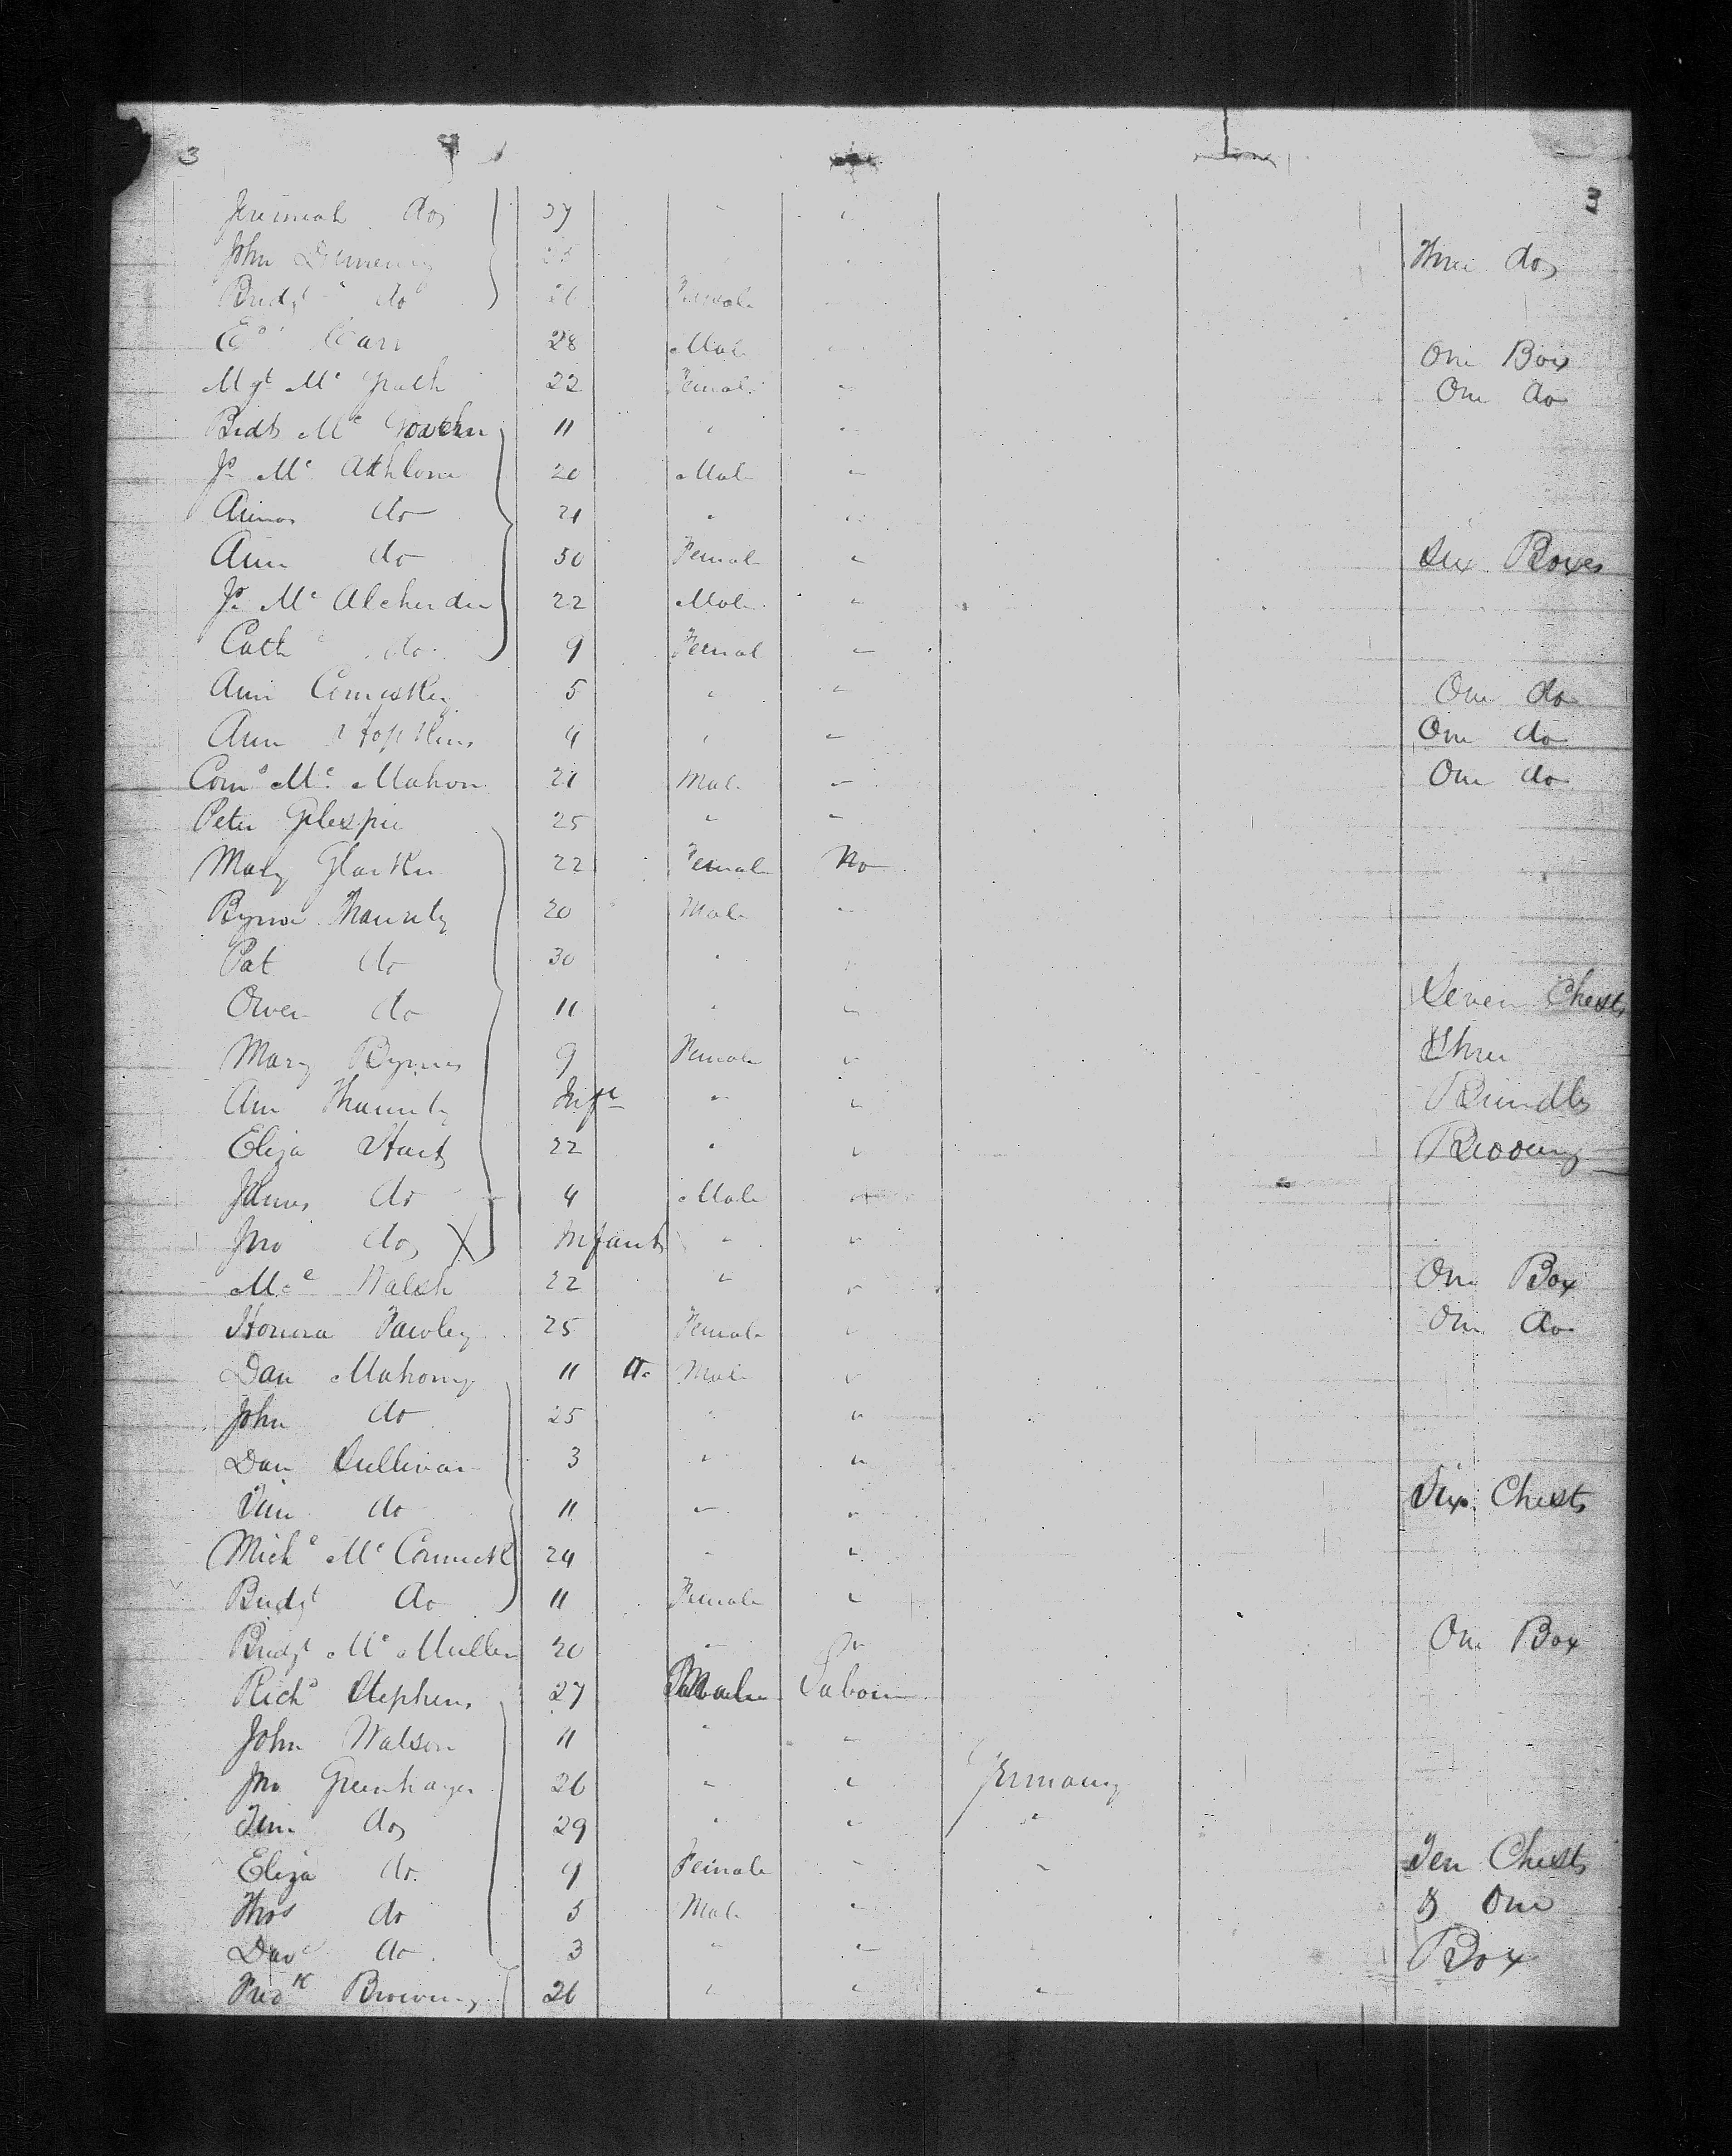 3
3
Jeremiah do 27 " "
John 25 " " Three do
Bridgt do 26 Female
Ed Carr 28 Male One Box
Mgt Mc Grath 22 Female " One do
Bridt Mc 11 " "
Jno Mc Athlone 20 Male "
do 21 " "
Ann do 50 Female " Six Boxes
Jno Mc 22 Male "
Cath do 9 Female "
Ann Comiskey 5 " " One do
Ann Hopkins 4 " " One do
Corns Mc Mahon 21 Male " One do
Peter Gilespie 25 " "
Mary 22 Female No
Byrne 20 Male "
Pat do 30 " "
Owen do 11 " " Seven Chests
Mary Byrnes 9 Female " Three
Ann Inft " " Bundles
Eliza Hart 22 " " Bedding
James do 4 Male "
Jno do X Infant " "
Walsh 22 " " One Box
Honora Fawley 25 Female " One do
Dan Mahony 11 11 Male "
John do 25 " "
Dan Sullivan 3 " "
do 11 " " Six Chests
Michl Mc Cormick 24 " "
Bridgt do 11 Female "
Bridgt Mc Mullen 20 " " One Box
Richd Stephens 27 Male Labour
John Watson 11 " "
Jno Greenhayer 26 " " Germany
do 29 " " "
Eliza do 9 Female " " Ten Chests
Thos do 5 Male " & One
Davd do 3 " " Box
Fredk Browning 26 " " "